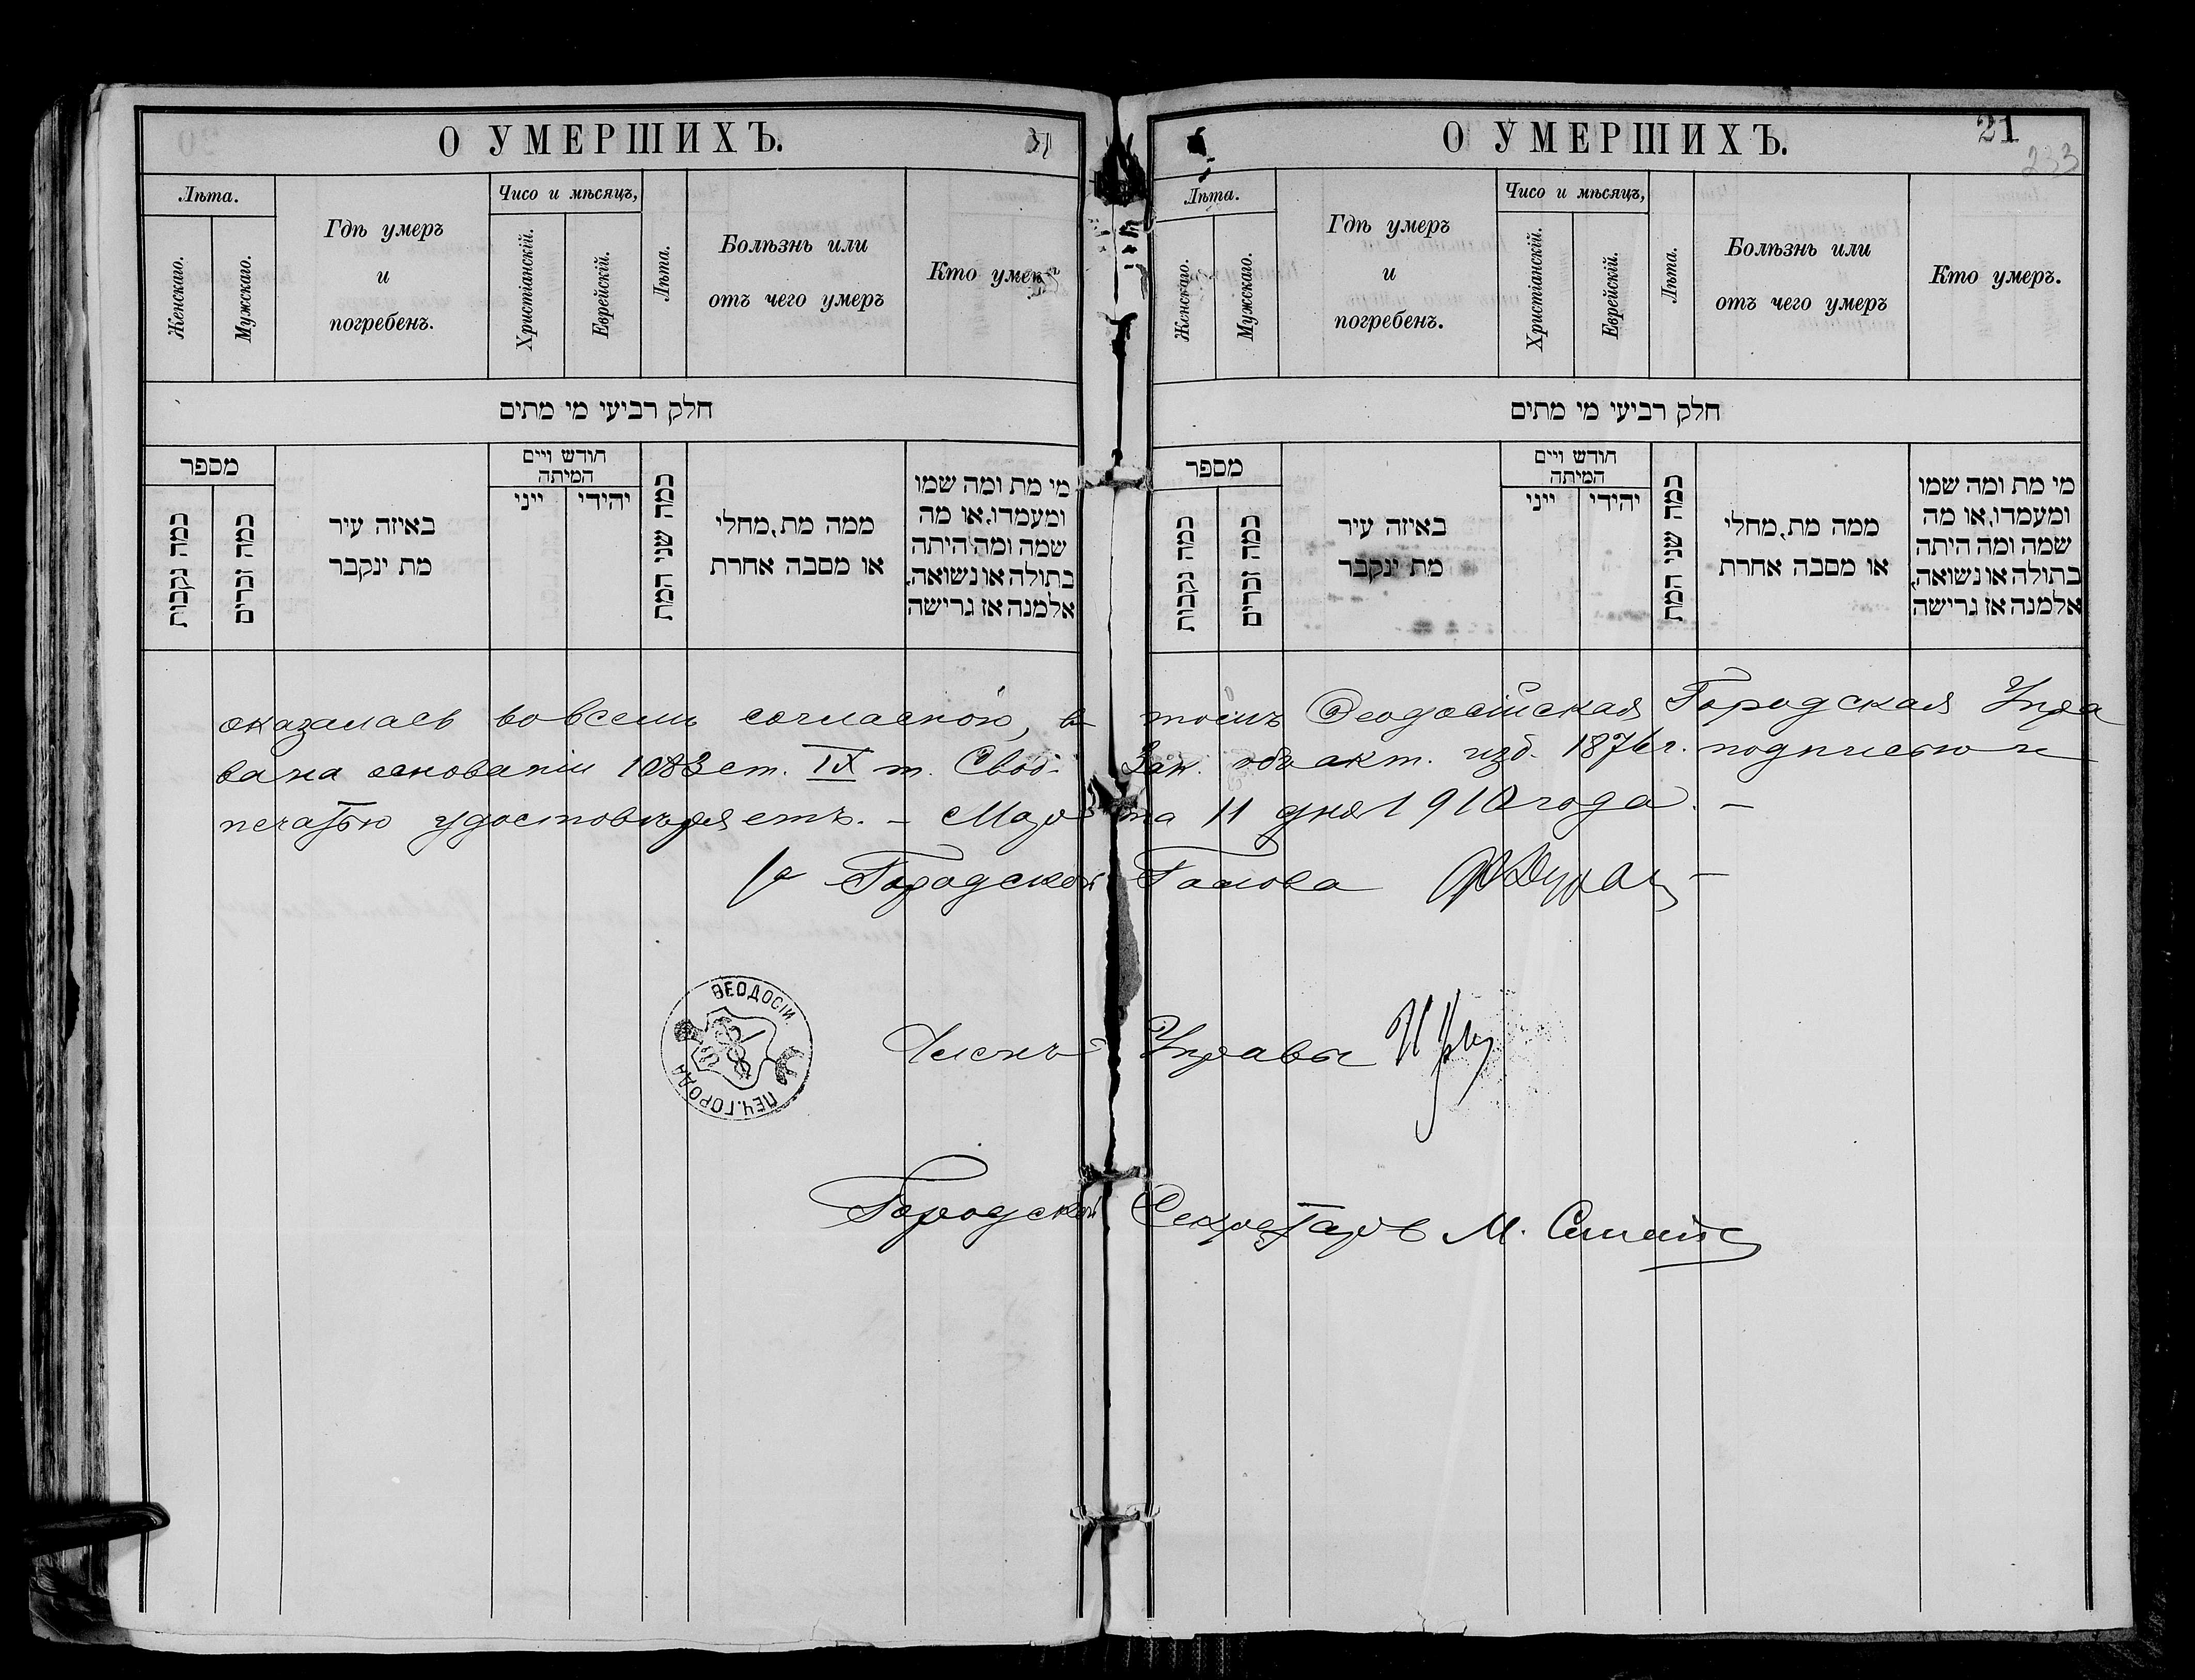 О УМЕРШИХЪ.
Лѣта.
Женскаго.
Мужскаго.
Гдѣ умеръ
и
погребенъ.
Чисо и мѣсяцъ,
Христіанскій.
Еврейскій.
Лѣта.
Болѣзнь или
отъ чего умеръ
Кто умеръ
חלק רביעי מי מתים
מספר
כמה נקבות
כמה זכרים
באיזה עיר
מת ינקבר
חודש ויים
המיתה
ייני
יהידי
כמה שני המת
ממה מת, מחלי
או מסבה אחרת
מי מת ומה שמו
ומעמדו, או מה
שמה ומה היתה
בתולה או נשואה,
אלמנה אז גרישה
О УМЕРШИХЪ.
21
233
Лѣта.
Женскаго.
Мужскаго.
Гдѣ умеръ
и
погребенъ.
Чисо и мѣсяцъ,
Христіанскій.
Еврейскій.
Лѣта.
Болѣзнь или
отъ чего умеръ
Кто умеръ.
חלק רביעי מי מתים
מספר
כמה נקבות
כמה זכרים
באיזה עיר
מת ינקבר
חודש ויים
המיתה
ייני
יהידי
כמה שני המת
ממה מת, מחלי
או מסבה אחרת
מי מת ומה שמו
ומעמדו, או מה
שמה ומה היתה
בתולה או נשואה,
אלמנה אז גרישה
оказалась во всемъ согласною, въ томъ Ѳеодосійская Городская Упра
ва на основаніи 1083 ст. IX т. Свод. Зак. объ акт. изд. 1876 г. подписью и
печатью удостовѣряетъ. – Марта 11 дня 1910 года. –
Городской Голова
Членъ Управы
ПЕЧ. ГОРОДА ѲЕОДОСІИ
Городской Секретарь М.